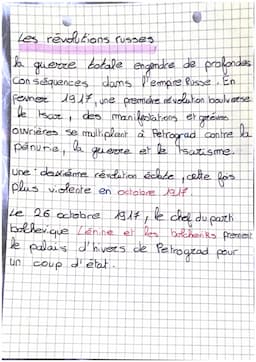 Les révolutions russes
la guerre totale engendre de profondes
conséquences dans l'empire Russe. En
février 1917, une première révolution bouleverse
le tsar, des manifestations et grèves
ouvrières se multiplient à Petrograd contre la
pénurie, la guerre et le tsarisme.
une deuxième révolution éclate, cette fois
plus violente en octobre 1917
Le 26 octobre 1917, le chef du parti
bolchevique Lénine et les bolcheviks prennent
le palais d'hivers de Petrograd pour
un coup d'état.